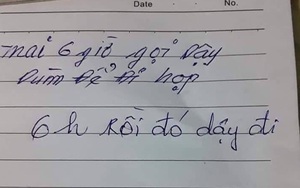 Date No.
mai 6 giờ gọi dậy
dùm để đi họp
6h rồi đó dậy đi